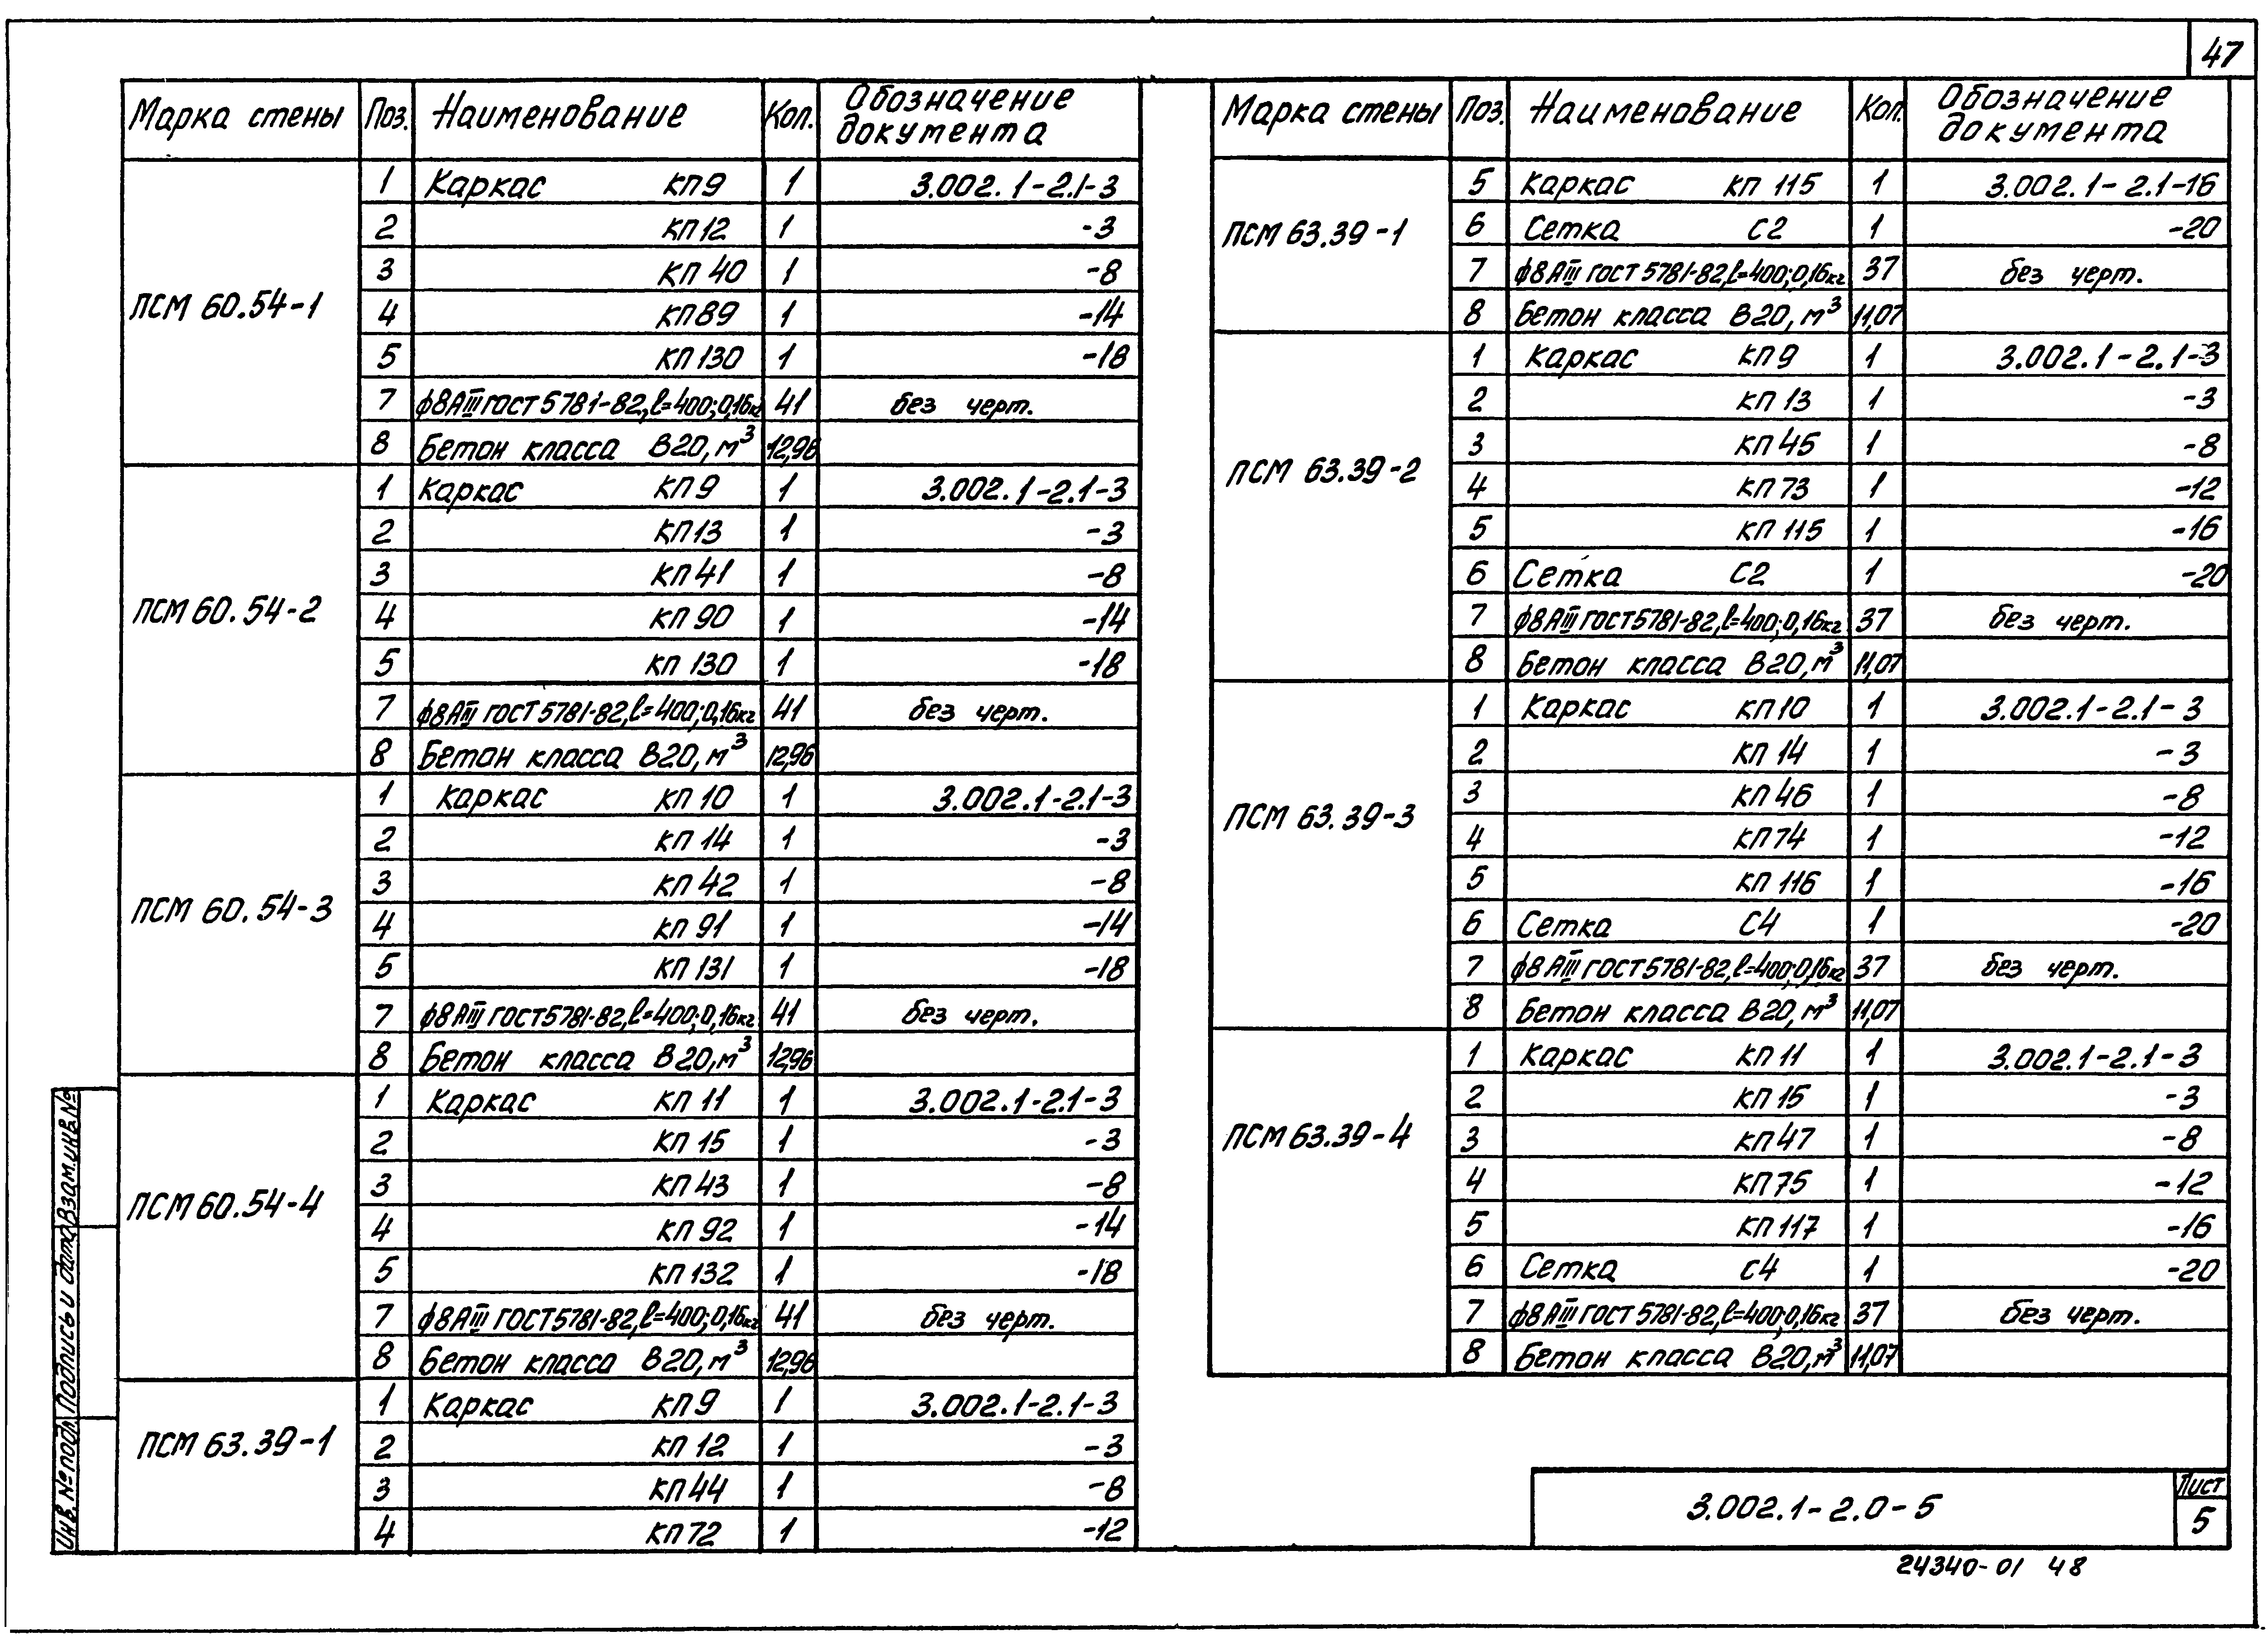 47
Марка стены Поз. Наименование Кол. Обозначение документа
ПСМ 60.54-1
1 Каркас КП9 1 3.002.1-2.1-3
2 КП12 1 -3
3 КП 40 1 -8
4 КП89 1 -14
5 КП130 1 -18
7 ф8АIII ГОСТ 5781-82, ℓ=400; 0,16кг 41 без черт.
8 Бетон класса В20, м³ 12,96
ПСМ 60.54-2
1 Каркас КП9 1 3.002.1-2.1-3
2 КП13 1 -3
3 КП41 1 -8
4 КП 90 1 -14
5 КП 130 1 -18
7 ф8АIII ГОСТ 5781-82, ℓ=400; 0,16кг 41 без черт.
8 Бетон класса В20, м³ 12,96
ПСМ 60.54-3
1 Каркас КП 10 1 3.002.1-2.1-3
2 КП 14 1 -3
3 КП 42 1 -8
4 КП 91 1 -14
5 КП 131 1 -18
7 ф8АIII ГОСТ 5781-82, ℓ=400; 0,16кг 41 без черт.
8 Бетон класса В20, м³ 12,96
ПСМ 60.54-4
1 Каркас КП 11 1 3.002.1-2.1-3
2 КП 15 1 -3
3 КП 43 1 -8
4 КП 92 1 -14
5 КП 132 1 -18
7 ф8АIII ГОСТ 5781-82, ℓ=400; 0,16кг 41 без черт.
8 Бетон класса В20, м³ 12,96
ПСМ 63.39-1
1 Каркас КП9 1 3.002.1-2.1-3
2 КП 12 1 -3
3 КП44 1 -8
4 КП72 1 -12
Марка стены Поз. Наименование Кол. Обозначение документа
ПСМ 63.39-1
5 Каркас КП 115 1 3.002.1-2.1-16
6 Сетка С2 1 -20
7 ф8АIII ГОСТ 5781-82, ℓ=400; 0,16кг 37 без черт.
8 Бетон класса В20, м³ 11,07
ПСМ 63.39-2
1 Каркас КП9 1 3.002.1-2.1-3
2 КП 13 1 -3
3 КП45 1 -8
4 КП73 1 -12
5 КП 115 1 -16
6 Сетка С2 1 -20
7 ф8АIII ГОСТ 5781-82, ℓ=400; 0,16кг 37 без черт.
8 Бетон класса В20, м³ 11,07
ПСМ 63.39-3
1 Каркас КП10 1 3.002.1-2.1-3
2 КП 14 1 -3
3 КП46 1 -8
4 КП74 1 -12
5 КП 116 1 -16
6 Сетка С4 1 -20
7 ф8АIII ГОСТ 5781-82, ℓ=400; 0,16кг 37 без черт.
8 Бетон класса В20, м³ 11,07
ПСМ 63.39-4
1 Каркас КП 11 1 3.002.1-2.1-3
2 КП 15 1 -3
3 КП47 1 -8
4 КП75 1 -12
5 КП 117 1 -16
6 Сетка С4 1 -20
7 ф8АIII ГОСТ 5781-82, ℓ=400; 0,16кг 37 без черт.
8 Бетон класса В20, м³ 11,07
Инв. № подл. Подпись и дата Взам. инв. №
3.002.1-2.0-5
Лист
5
24340-01 48